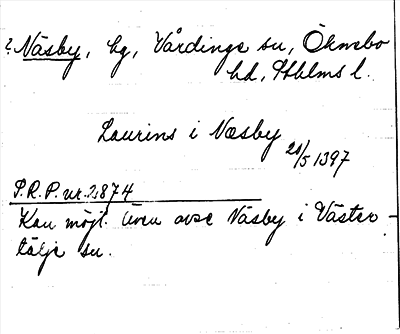 ? Näsby, by, Vårdinge sn, Öknebo
hd, Sthlms l.
Laurins i Næsby
21/5 1397
P.R.P. nr. 2874
Kan möjl. även avse Näsby i Väster-
tälje sn.